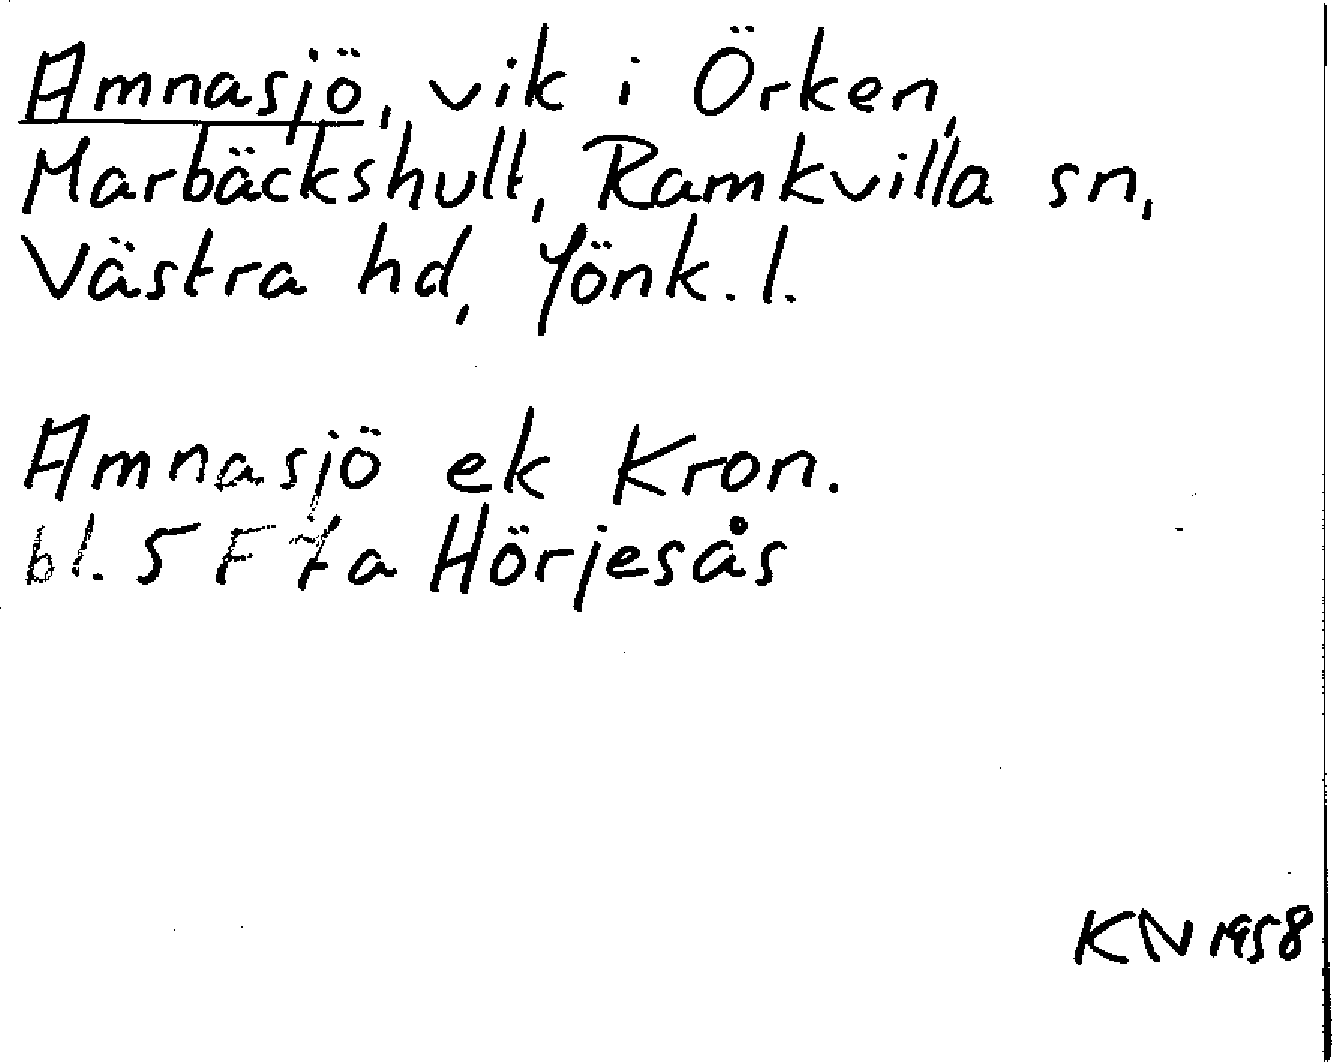 Amnasjö, vik i Örken,
Marbäckshult, Ramkvilla sn,
Västra hd, Jönk. l.
Amnasjö ek Kron.
bl. 5 F 7a Hörjesås
KN 1958